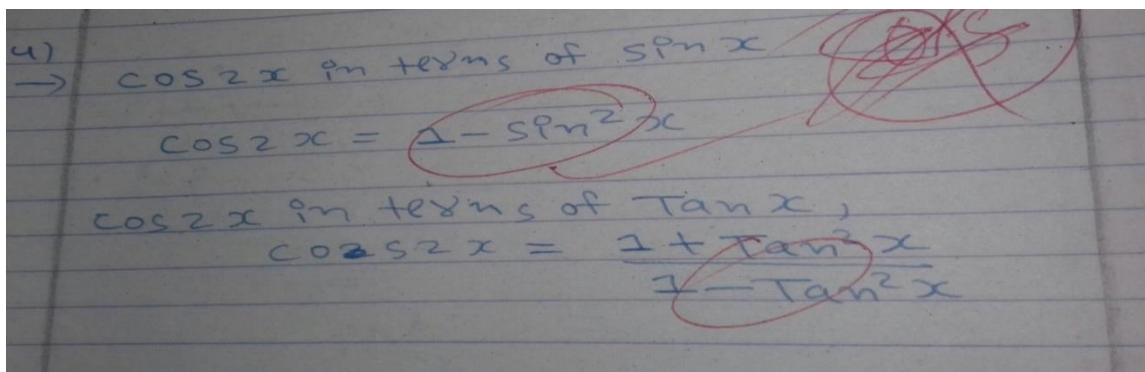 4)
→ cos2x in terms of sinx
cos2x = 1 - sin²x
cos2x in terms of Tanx,
cos2x = 1 + Tan²x / 1 - Tan²x